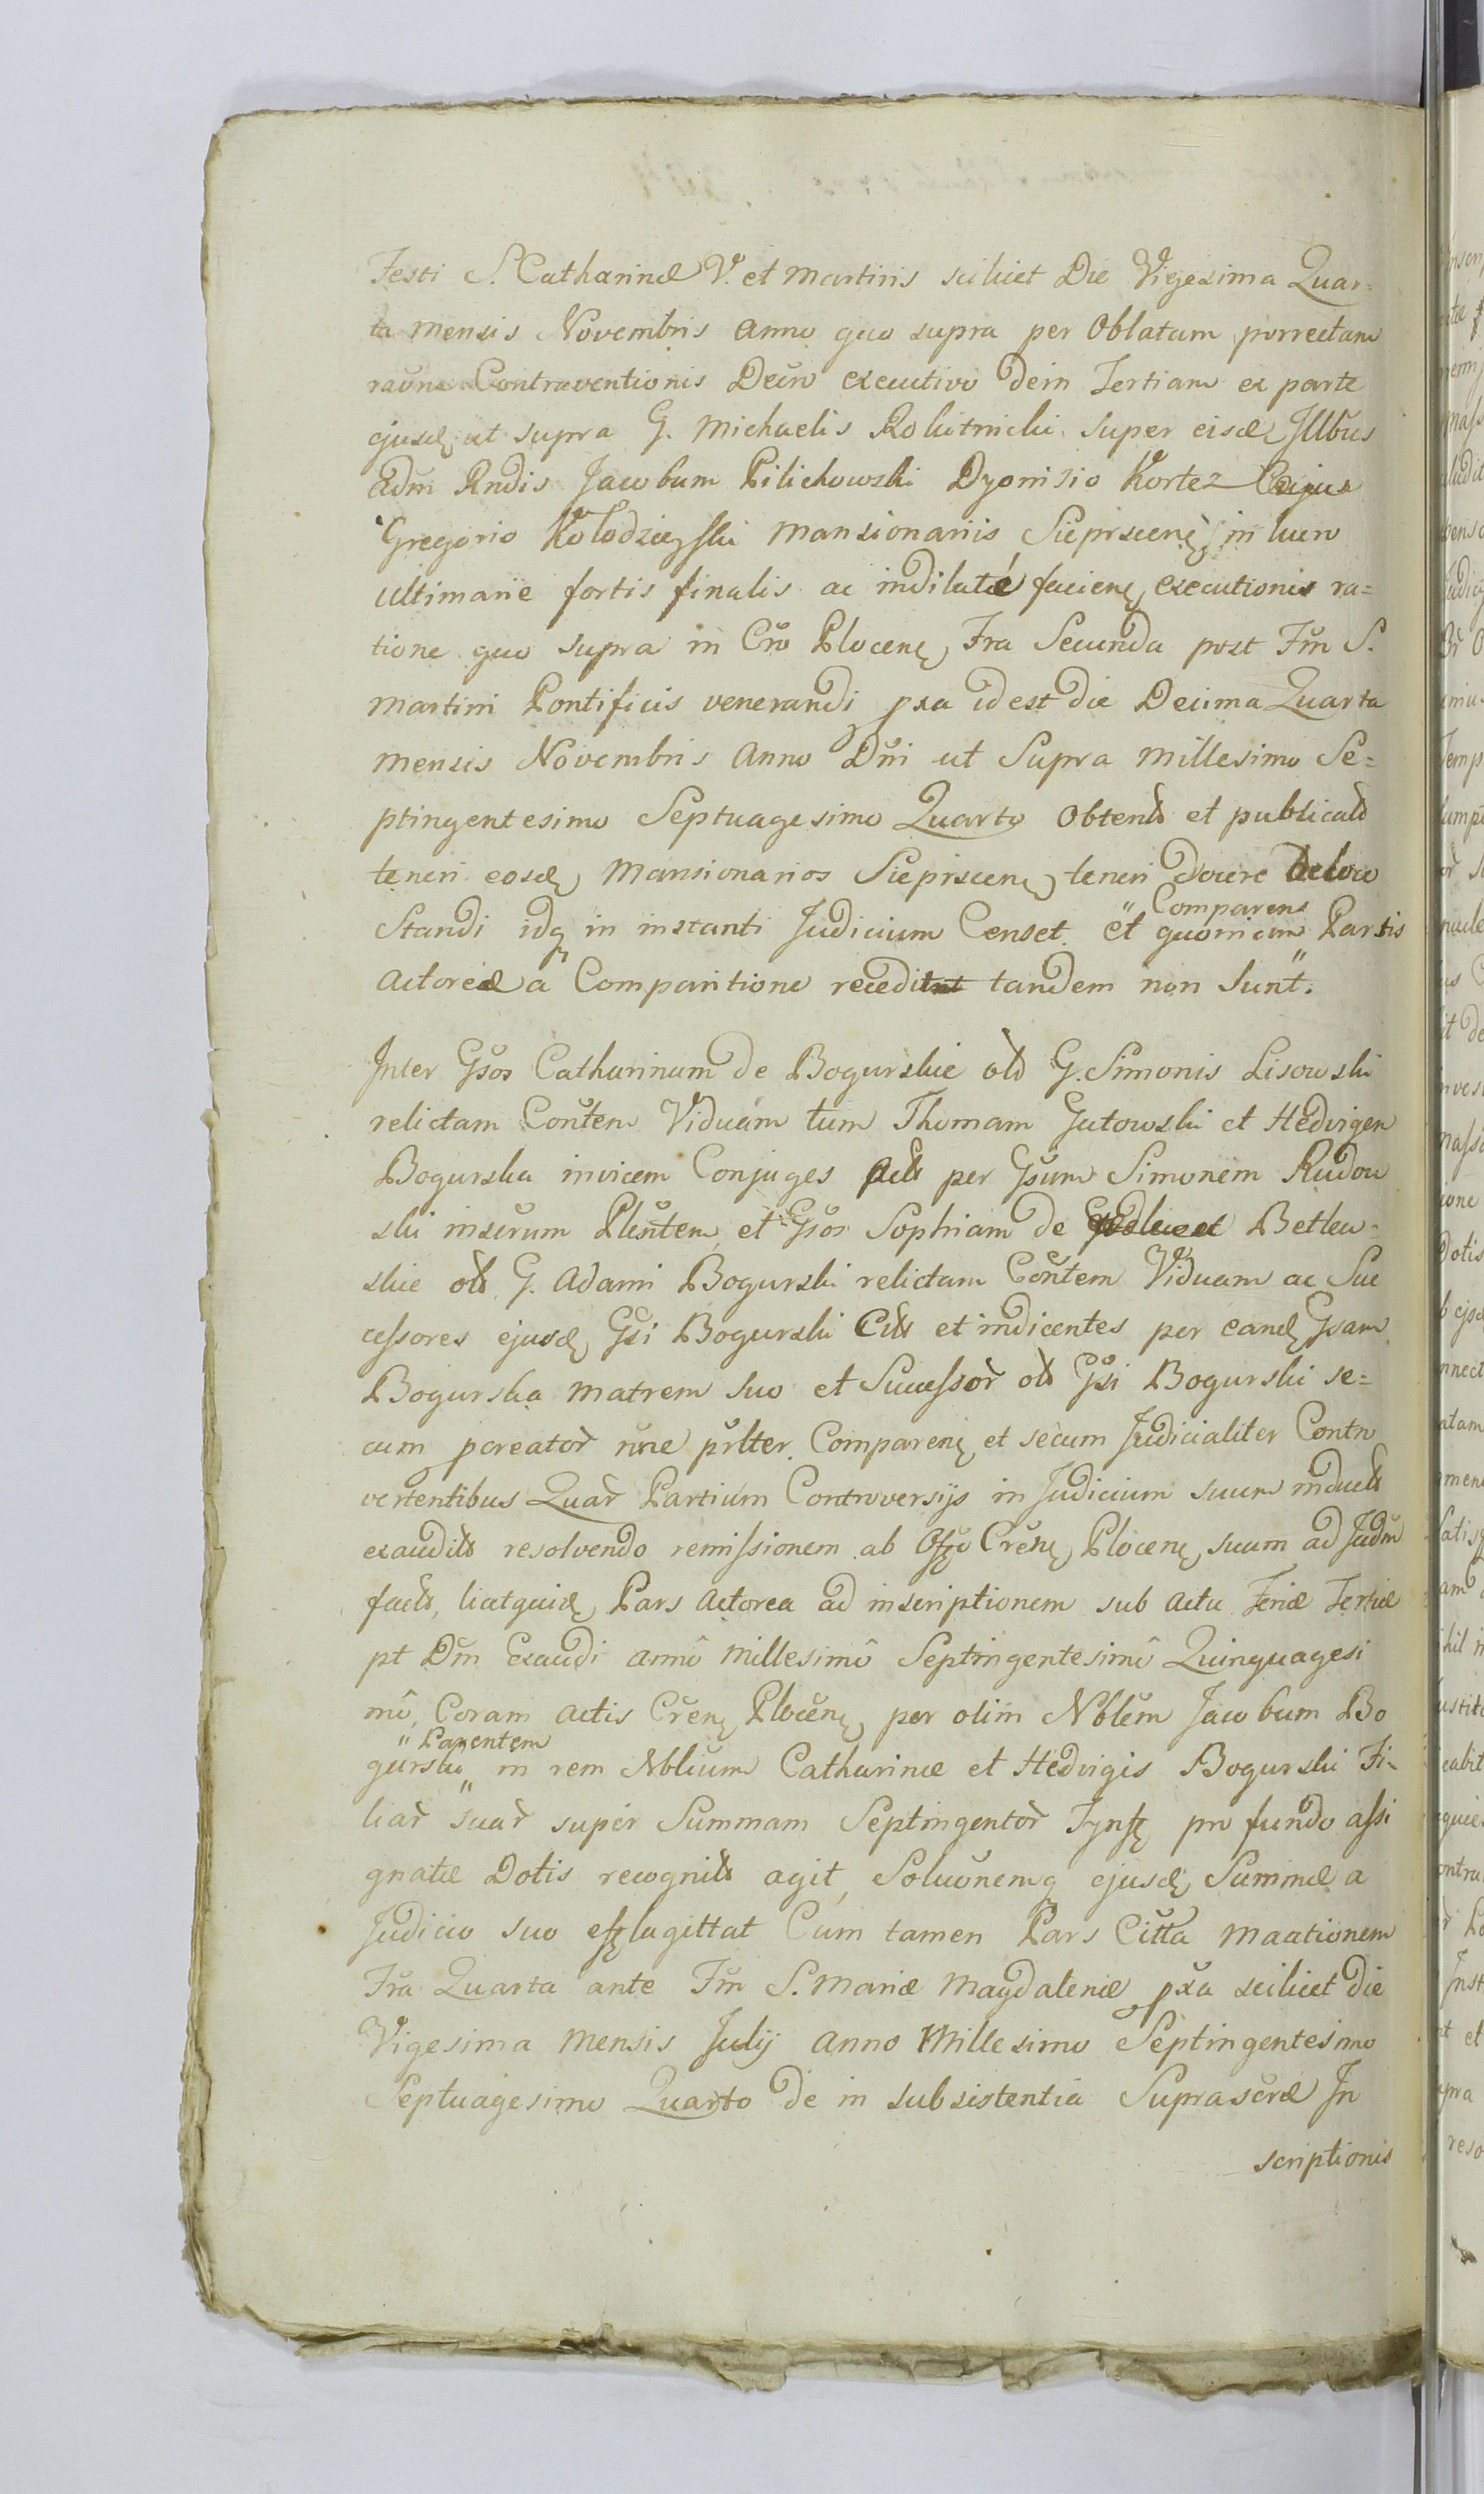 Festi S. Catharinæ V. et Martiris scilicet Die Vigesima Quar=
ta Mensis Novembris Anno quo supra per Oblatam porrectam
raõne Contraventionis Decro executivo dein Tertiam ex parte
ejusd ut supra G. Michaelis Rokitnicki super eisd Illbus
Adm Rndis Jacobum Pilichowski Dyonisio Kortez
Gregorio Kołodzieyski Mansionariis Sieprscen in lucro
ultimarie fortis finalis ac indilatæ facien executionis ra=
tione quo supra in Cro Plocen Fra Secunda post Fm S.
Martini Pontificis venerandi pxa id est die Decima Quarta
Mensis Novembris Anno Dni ut Supra Millesimo Se=
ptingentesimo Septuagesimo Quarto obtent et publicat
teneri eosd Mansionarios Sieprscen teneri docere De loco
Comparens
Standi idq in instanti Judicium Censet. et quoniam Partis
Actoreæ a Comparitione recedit tandem non sunt.
Inter Gsos Catharinam de Bogurskie old G. Simonis Lisowski
relictam Contem Viduam tum Thomam Gutowski et Hedvigen
Bogurska invicem Conjuges Act per Gsum Simonem Rudow
ski inserum Plentem, et Gsos Sophiam de Betlew=
skie old G. Adami Bogurski relictam Contem Viduam ac Suc
cessores ejusd Gsi Bogurski Citt et indicentes per eand Gsam
Bogurska Matrem suo et Successor old Gsi Bogurski se=
cum pcreator nñe prlter. Comparen et secum Judicialiter Contro
vertentibus Quar Partium Controversijs in Judicium suum induct
exaudit resolvendo remissionem ab Offo Cren Plocen suum ad Judm
fact, licet quid Pars Actorea ad inscriptionem sub Actu Feriæ Tertiæ
pt Dm Exaudi annô Millesimô Septingentesimô Quinquagesi
mô, Coram Actis Cren Plocen per olim Nblem Jacobum Bo
Parentem
gurski in rem Nblium Catharinæ et Hedvigis Bogurski Fi=
liar suar super Summam Septingentor Tynff pro fundo assi
gnatæ Dotis recognit agit, Soluõnemq ejusd Summæ a
Judicio suo efflagittat Cum tamen Pars Citta Maationem
Fra Quarta ante Fm S. Mariæ Magdalenæ pxa scilicet die
Vigesima Mensis Julij Anno Millesimo Septingentesimo
Septuagesimo Quarto de in subsistentia Suprascræ In
scriptionis